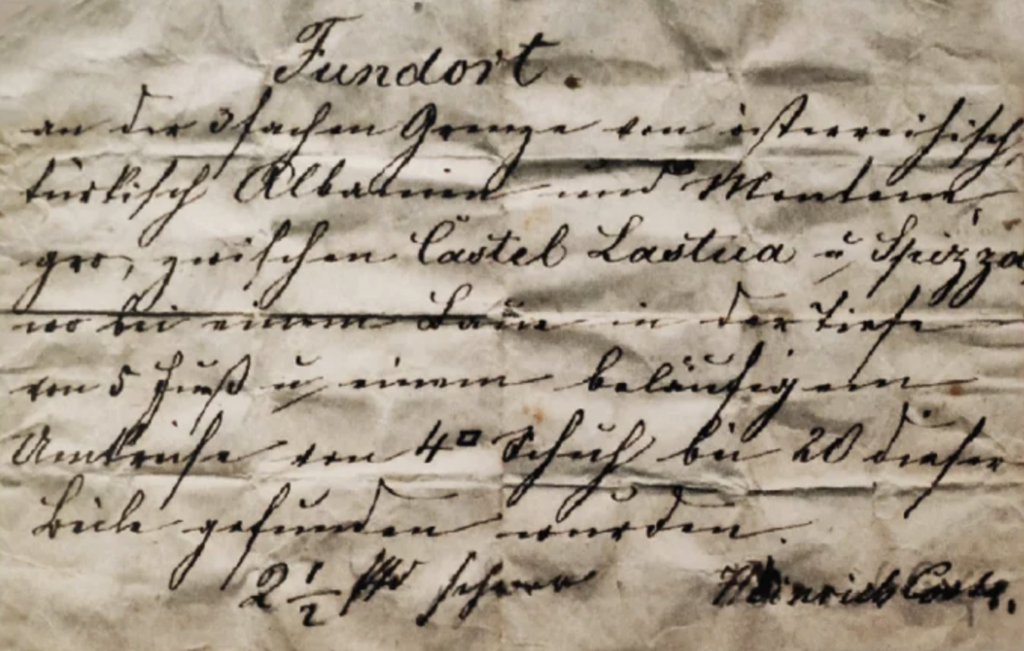 Fundort.
an der 3fachen Grenze von österreichisch,
türkisch Albanien und Montene
gro, zwischen Castel Lastua u Spizza
wo bei einem Baue in der Tiefe
von 5 Fuß u einem beläufigem
Umkreise von 4□ Schuh bei 20 dieser
Beile gefunden wurden.
2½ Pfd schwer Heinrich